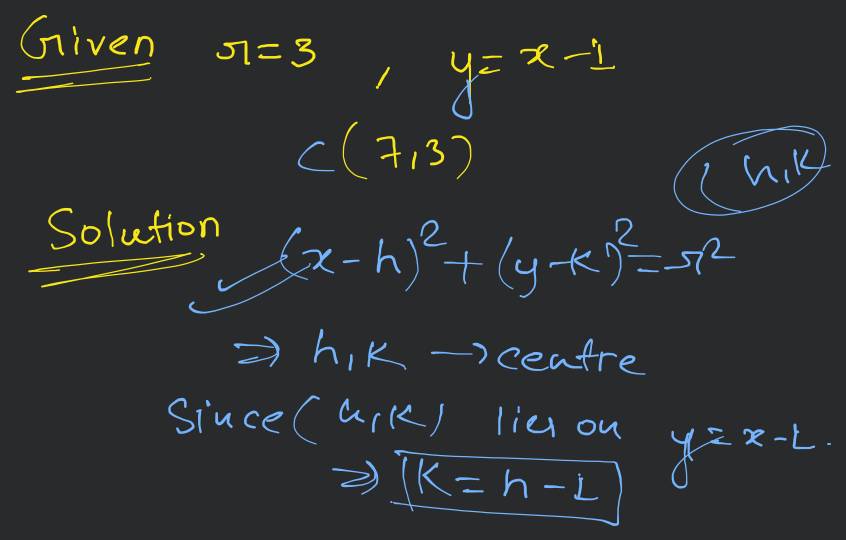 Given r=3 , y=x-1
C(7,3)
(h,k
Solution
(x-h)²+(y-k)²=r²
⇒ h,k → centre
Since (h,k) lies on y=x-1.
⇒ k=h-1